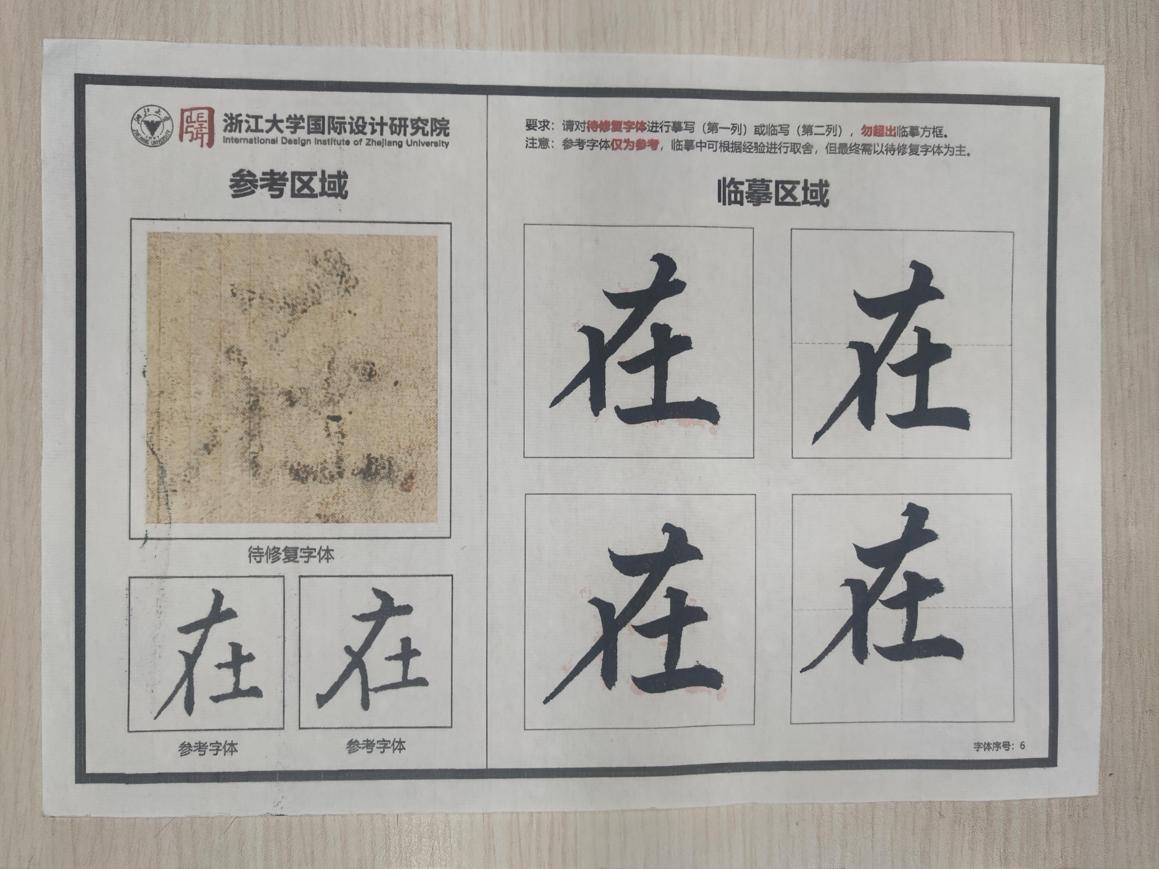 浙江大学国际设计研究院
International Design Institute of Zhejiang University
参考区域
待修复字体
在
在
参考字体
参考字体
要求：请对待修复字体进行摹写（第一列）或临写（第二列），勿超出临摹方框。
注意：参考字体仅为参考，临摹中可根据经验进行取舍，但最终需以待修复字体为主。
临摹区域
在
在
在
在
字体序号：6